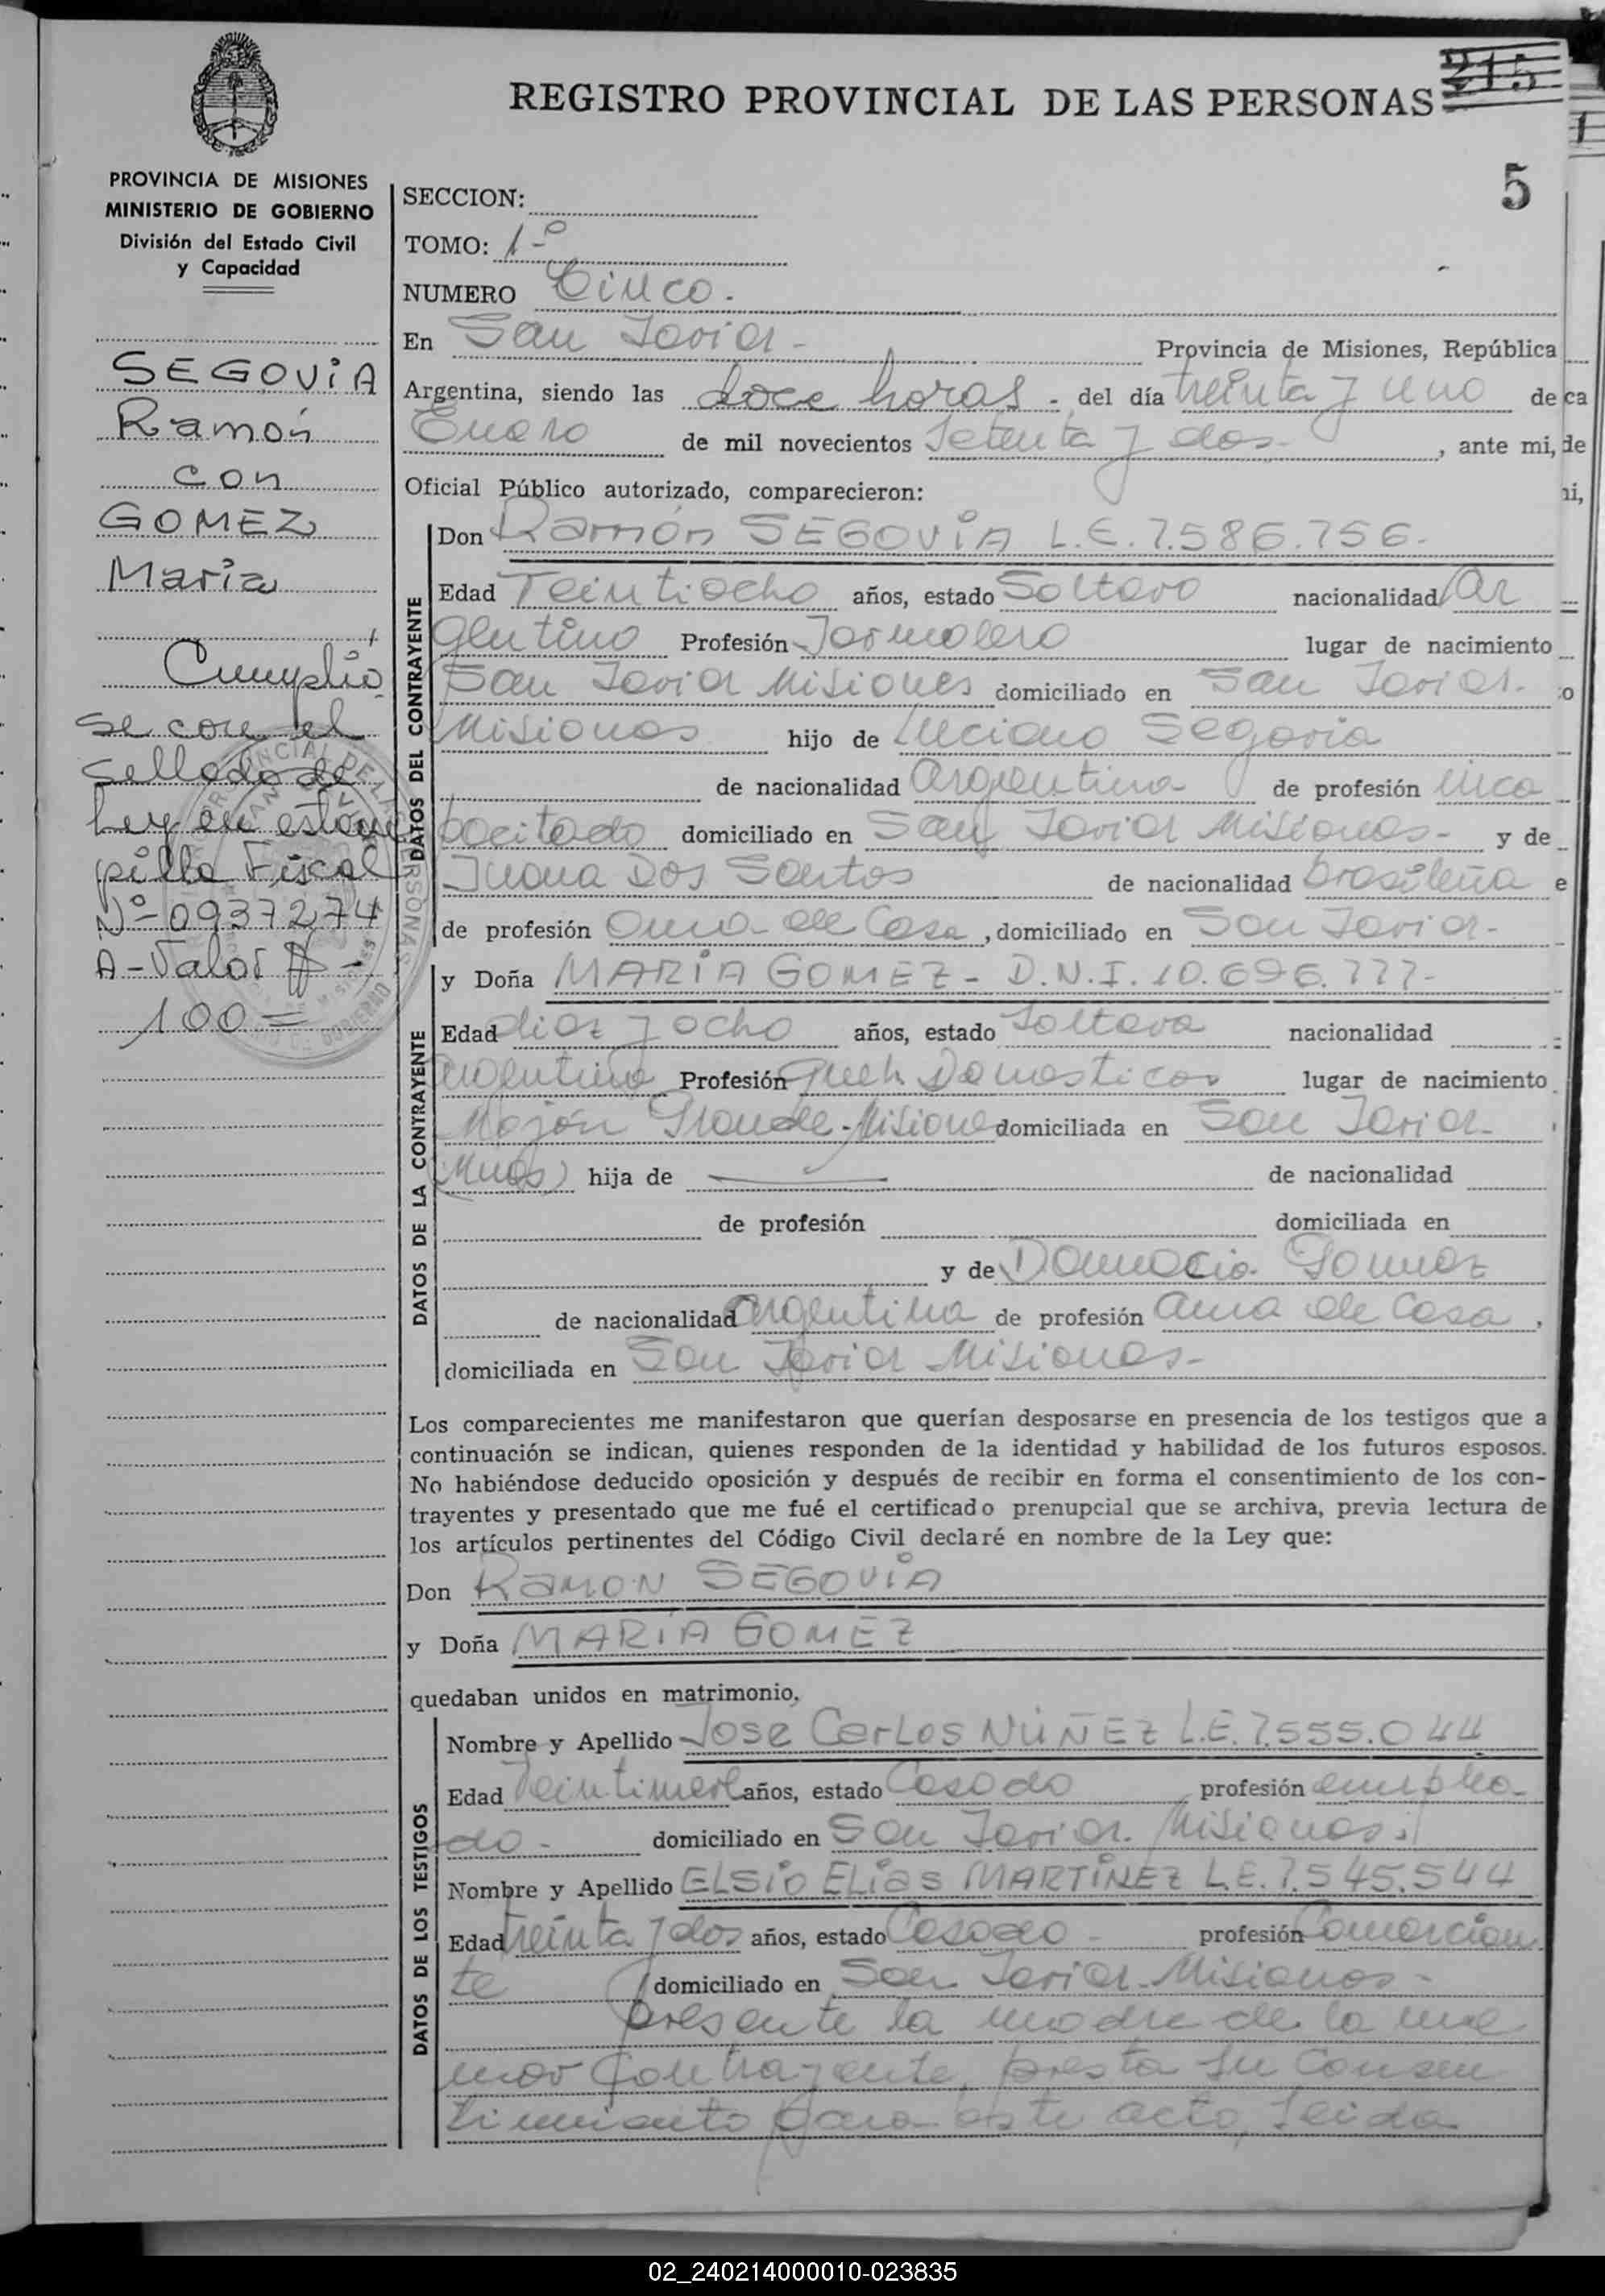 215
REGISTRO PROVINCIAL DE LAS PERSONAS
5
PROVINCIA DE MISIONES
MINISTERIO DE GOBIERNO
División del Estado Civil
y Capacidad
SEGOVIA
Ramón
con
GOMEZ
Maria
Cumplió
se con el
sellado de
Ley en estam
pilla Fiscal
Nº-0937274
A-Valor $-
100=
SECCION:
TOMO: 1-º
NUMERO Cinco.
En San Javier - Provincia de Misiones, República
Argentina, siendo las doce horas - del día treinta y uno de
Enero de mil novecientos Setenta y dos- , ante mi,
Oficial Público autorizado, comparecieron:
DATOS DEL CONTRAYENTE
Don Ramón SEGOVIA L.E. 7.586.756.
Edad Veintiocho años, estado Soltero nacionalidad Ar
gentino Profesión Jornalero lugar de nacimiento
San Javier Misiones domiciliado en San Javier-
Misiones hijo de Luciano Segovia
de nacionalidad argentina de profesión inca
pacitado domiciliado en San Javier Misiones- y de
Juana Dos Santos de nacionalidad brasileña
de profesión Ama de Casa , domiciliado en San Javier-
DATOS DE LA CONTRAYENTE
y Doña MARIA GOMEZ- D.N.I. 10.696.777-
Edad diez y ocho años, estado Soltera nacionalidad
argentina Profesión Queh. Domesticos lugar de nacimiento
Mojón Grande-Misione domiciliada en San Javier-
(Mnes) hija de ——— de nacionalidad
de profesión domiciliada en
y de Damacia Gomez
de nacionalidad argentina de profesión ama de Casa ,
domiciliada en San Javier Misiones-
Los comparecientes me manifestaron que querían desposarse en presencia de los testigos que a
continuación se indican, quienes responden de la identidad y habilidad de los futuros esposos.
No habiéndose deducido oposición y después de recibir en forma el consentimiento de los con-
trayentes y presentado que me fué el certificado prenupcial que se archiva, previa lectura de
los artículos pertinentes del Código Civil declaré en nombre de la Ley que:
Don RAMON SEGOVIA
y Doña MARIA GOMEZ
quedaban unidos en matrimonio.
DATOS DE LOS TESTIGOS
Nombre y Apellido José Carlos NÚÑEZ L.E. 7.555.044
Edad años, estado Casado profesión emplea-
do- domiciliado en San Javier. Misiones.
Nombre y Apellido ELSIO ELias MARTINEZ L.E. 7.545.544
Edad treinta y dos años, estado Casado - profesión Comercian
te domiciliado en San Javier-Misiones-
presente la madre de la me
nor Contrayente, presta su Consen
timiento para este acto, Leida
02_240214000010-023835